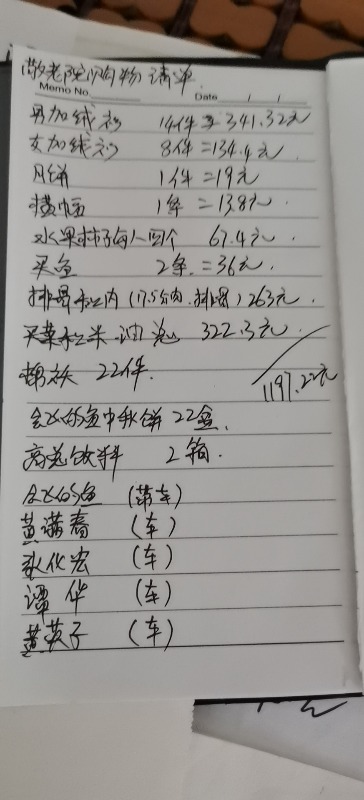 敬老院购物清单
Memo No. Date / /
男加绒衫 14件=341.32元
女加绒衫 8件=134.4元
月饼 1件=19元
横幅 1条=13.8元
水果柿子每人四个 67.4元.
买鱼 2条.=36元.
排骨和肉(17.5分肉.排骨)263元.
买菜和米.油 322.3元.
棉袄 22件.
1197.22元
会飞的鱼中秋饼22盒.
饮料 2箱.
会飞的鱼 (带车)
黄满春 (车)
化宏 (车)
谭华 (车)
黄英子 (车)